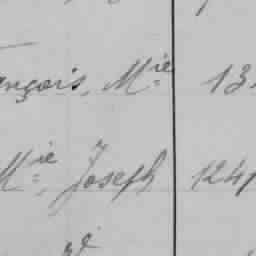 ançois, Mie 13
Mie, Joseph 124
d